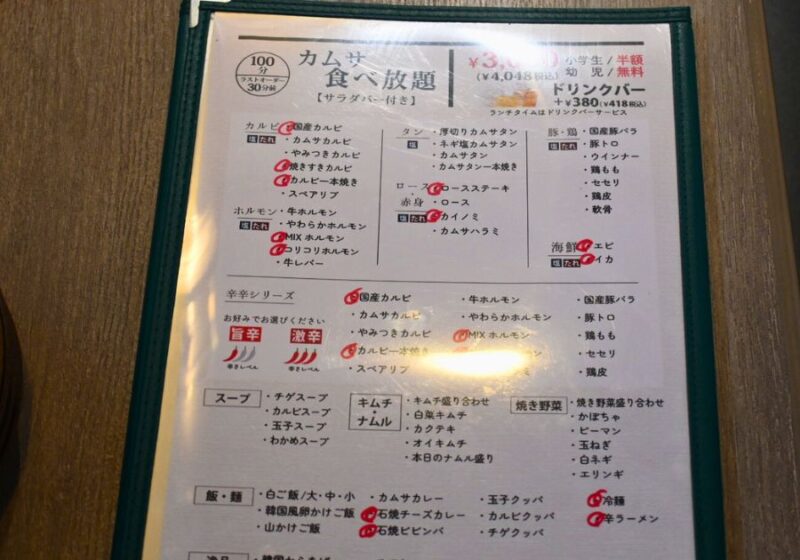 100分
ラストオーダー
30分前
カムサ
食べ放題
【サラダバー付き】
(¥4,048税込)
小学生/半額
幼児/無料
ドリンクバー
+¥380(¥418税込)
ランチタイムはドリンクバーサービス
カルビ
塩 たれ
国産カルビ
・カムサカルビ
・やみつきカルビ
焼きすきカルビ
カルビ一本焼き
・スペアリブ
ホルモン
塩 たれ
・牛ホルモン
・やわらかホルモン
MIX ホルモン
コリコリホルモン
・牛レバー
タン
塩
・厚切りカムサタン
・ネギ塩カムサタン
・カムサタン
・カムサタン一本焼き
ロース・赤身
塩 たれ
ロースステーキ
・ロース
カイノミ
・カムサハラミ
豚・鶏
塩 たれ
・国産豚バラ
・豚トロ
・ウインナー
・鶏もも
・セセリ
・鶏皮
・軟骨
海鮮
塩 たれ
エビ
イカ
辛辛シリーズ
お好みでお選びください
旨辛 激辛
辛さレベル 辛さレベル
国産カルビ
・カムサカルビ
・やみつきカルビ
カルビ一本焼き
・スペアリブ
・牛ホルモン
・やわらかホルモン
MIX ホルモン
・国産豚バラ
・豚トロ
・鶏もも
・セセリ
・鶏皮
スープ
・チゲスープ
・カルビスープ
・玉子スープ
・わかめスープ
キムチ・ナムル
・キムチ盛り合わせ
・白菜キムチ
・カクテキ
・オイキムチ
・本日のナムル盛り
焼き野菜
・焼き野菜盛り合わせ
・かぼちゃ
・ピーマン
・玉ねぎ
・白ネギ
・エリンギ
飯・麺
・白ご飯/大・中・小
・韓国風卵かけご飯
・山かけご飯
・カムサカレー
石焼チーズカレー
石焼ビビンバ
・玉子クッパ
・カルビクッパ
・チゲクッパ
冷麺
辛ラーメン